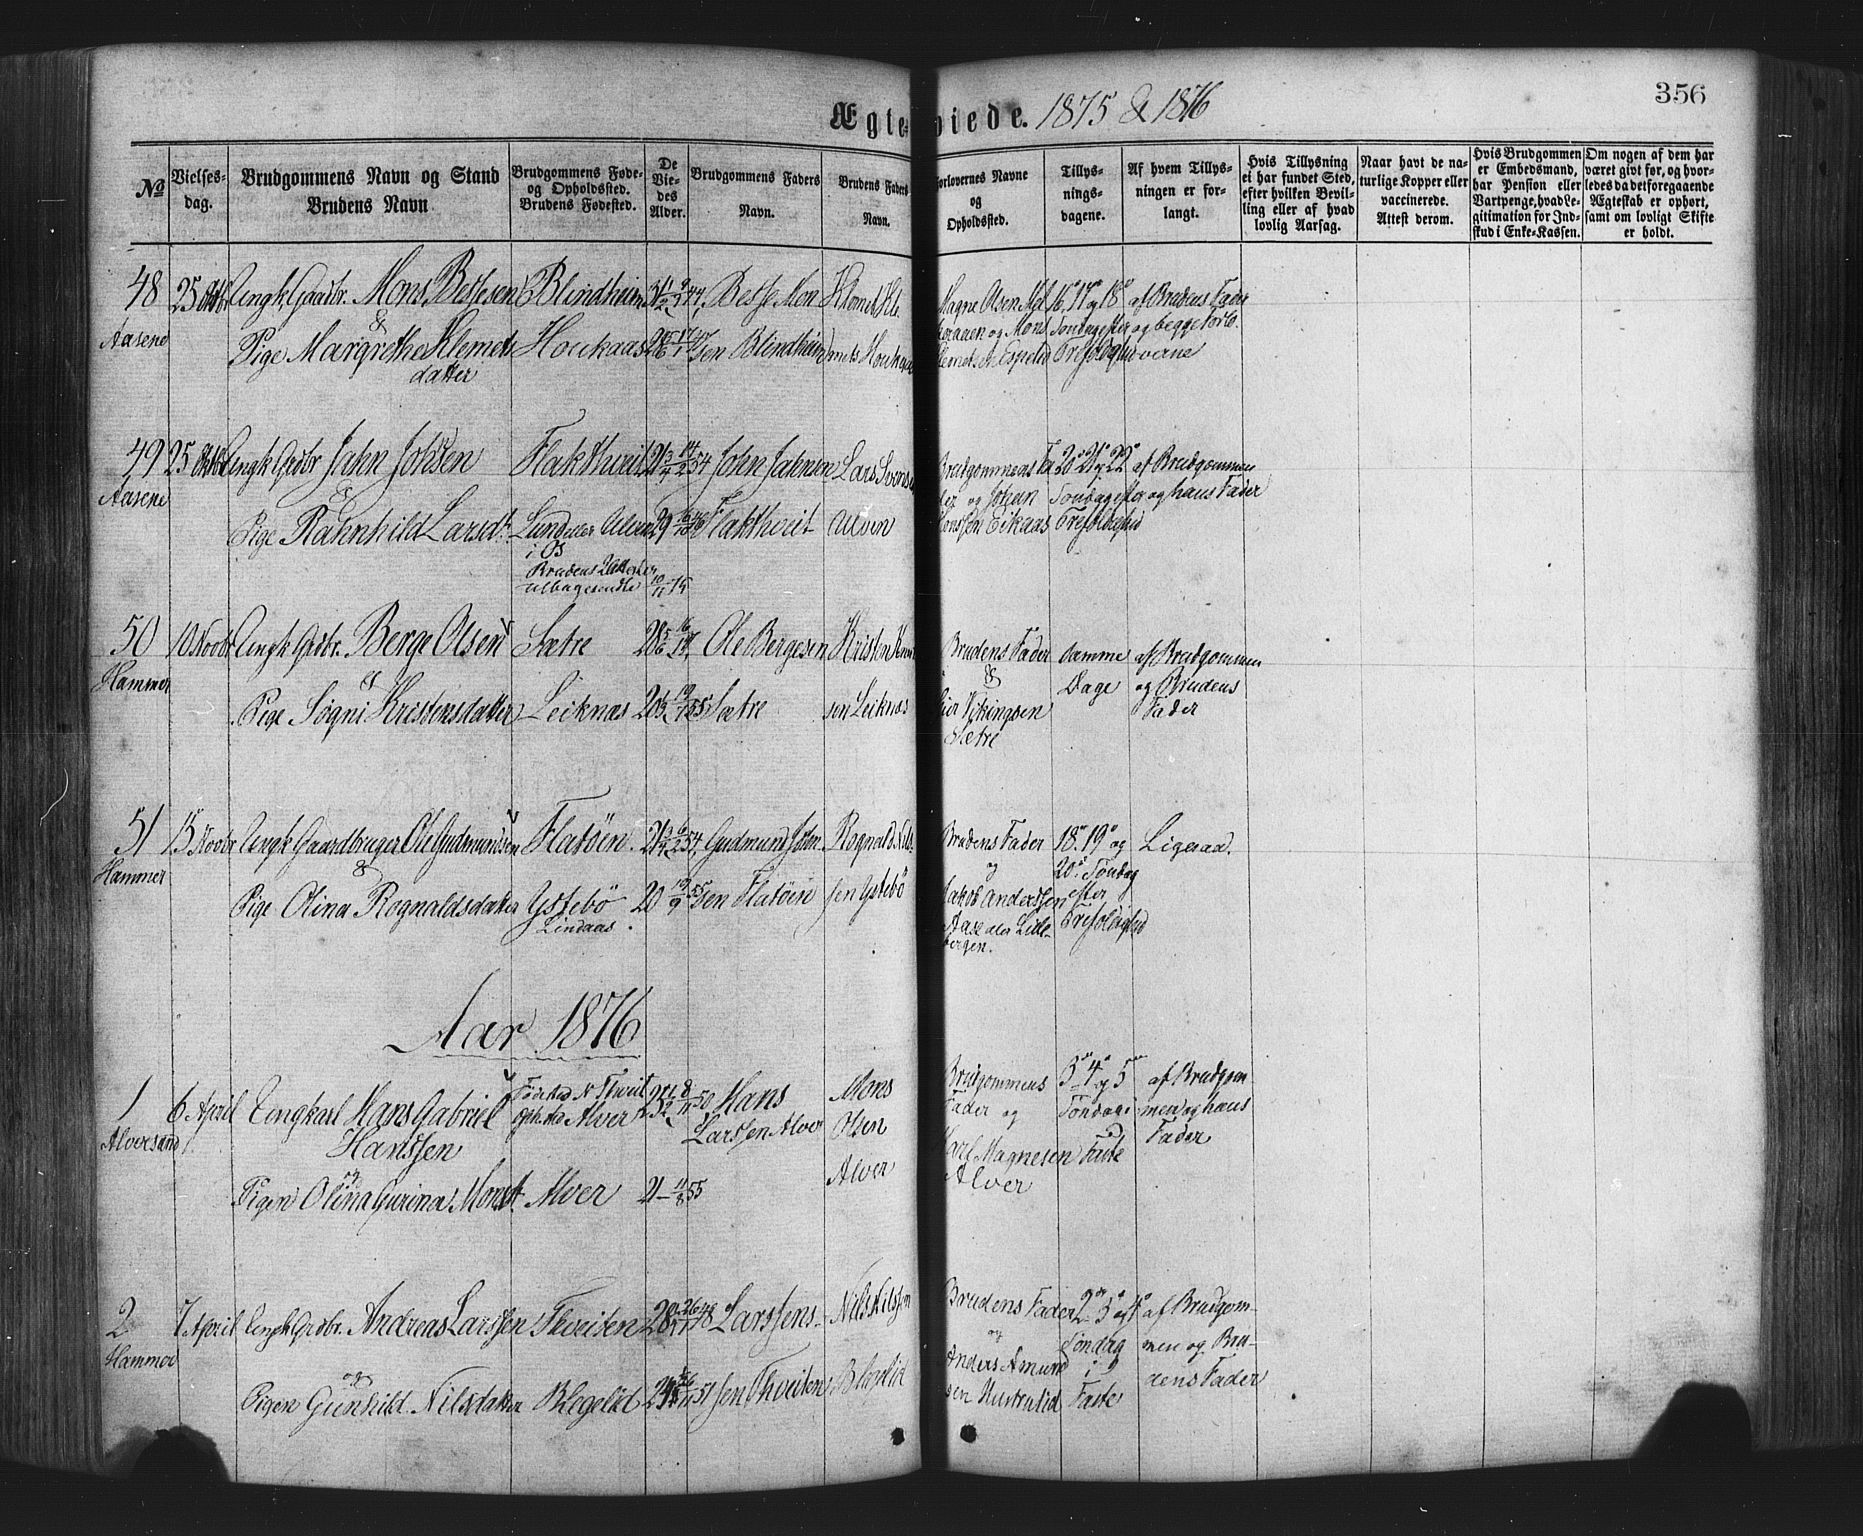 356
Ægteviede. 1875 & 1876
No
Vielses-
dag.
Brudgommens Navn og Stand
Brudens Navn
Brudgommens Føde-
og Opholdssted.
Brudens Fødested.
De
Vie-
des
Alder.
Brudgommens Faders
Navn.
Brudens Faders
Navn.
Forlovernes Navne
og
Opholdssted.
Tillys-
nings-
dagene.
Af hvem Tillys-
ningen er for-
langt.
Hvis Tillysning
ei har fundet Sted,
efter hvilken Bevil-
ling eller af hvad
lovlig Aarsag.
Naar havt de na-
turlige Kopper eller
vaccinerede.
Attest derom.
Hvis Brudgommen
er Embedsmand,
har Pension eller
Vartpenge, hvad Le-
gitimation for Ind-
skud i Enke-Kassen.
Om nogen af dem har
været givt før, og hvor-
ledes da det foregaaende
Ægteskab er ophørt,
samt om lovligt Skifte
er holdt.
48
Aasene
25 Oktbr
Ungk Gaardbr. Mons Bessesen
&
Pige Margrethe Klemets
datter
Blindheim
Houkaas
Besse Mon
sen Blindheim
Klemet Kle
mets Houkaas
Magne Olsen Mjel
og Mons
Klemets N. Espelid
16' 17' og 18'
Søndag efter
Trefoldighed
af Brudens Fader
og begge Forlo-
verne
49
Aasene
25 Oktbr
Ungk Grdbr Jahn Johnsen
&
Pige Rahnhild Larsdt.
Flakthveit
Lund eller Ulven
i Os
Brudens
tilbagesendte 10/11 75
21 3/4 14/2 54
29 16/10 46
John Jahnsen
Flakthveit
Lars Svensen
Ulven
Brudgommens Fa
der og Johan
Monssen Eikaas
20' 21' og 22'
Søndag efter
Trefoldighed
af Brudgommen
og hans Fader
50
Hammer
10 Novbr
Ungk Grdbr. Berge Olsen
&
Pige Søgni Kristensdatter
Sætre
Leiknas
Ole Bergesen
Sætre
Kristen
sen Leiknas
Brudens Fader
&
Vikingsen
Sætre
samme
Dage
af Brudgommen
og Brudens
Fader
51
Hammer
15 Novbr
Ungk Gaardbruger Ole Gudmundsen
&
Pige Olina Rognaldsdatter
Flatøen
Ystebø
Lindaas.
21 3/4 6/2 54
20 19/9 55
Gudmund John
sen Flatøen
Rognald Nils
sen Ystebø
Brudens Fader
og
Jakob Anderssen
Aase eller Lille-
bergen.
18' 19' og
20' Søndag
efter
Trefoldighed
Ligesaa.
Aar 1876
1
Alversund
6 April
Ungkarl Hans Gabriel
Hanssen
og
Pigen Olina Gurina Monsdt.
Føested N. Thveit
Alver
Alver
25 1/2 8/11 50
21 – 11/8 55
Hans
Larssen Alver
Mons
Olsen
Alver
Brudgommens
Fader og
Karl Magnesen
Alver
3' 4' og 5'
Søndag i
Faste
af Brudgom
men og hans
Fader
2
Hammer
7 April
Ungk Grdbr. Andreas Larssen
og
Pigen Gunhild Nilsdatter
Thveiten
Blegelid
Lars Jens-
sen Thveiten
Nils Nilssen
Blegelid
Brudens Fader
og
Anders Amund
sen
2' 3' og 4'
Søndag
i
Faste
af Brudgom-
men og Bru-
dens Fader